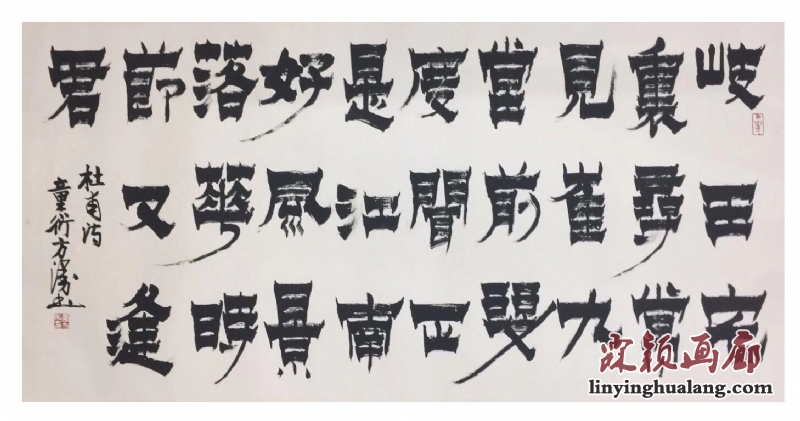 岐王宅
裏尋常
見崔九
堂前幾
度聞正
是江南
好風景
落華時
節又逢
君
杜甫诗
童衍方
霖颖画廊
linyinghualang.com